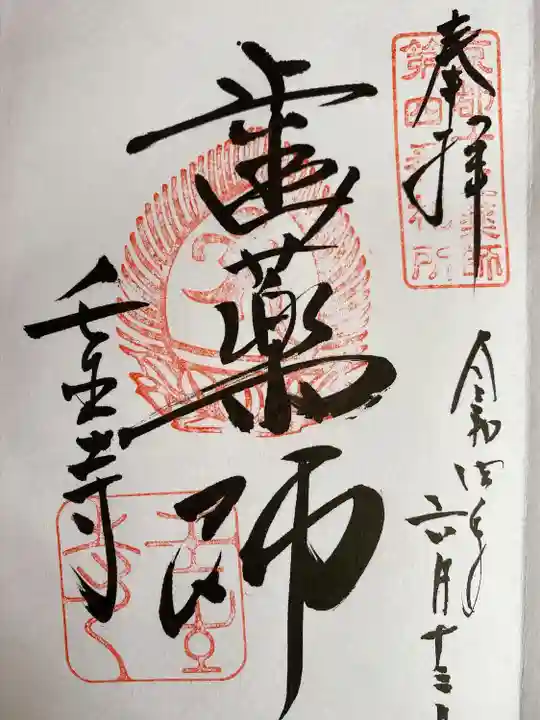 奉拝
京都十二薬師
第四番札所
令和四年六月十三日
歯薬師
壬生寺